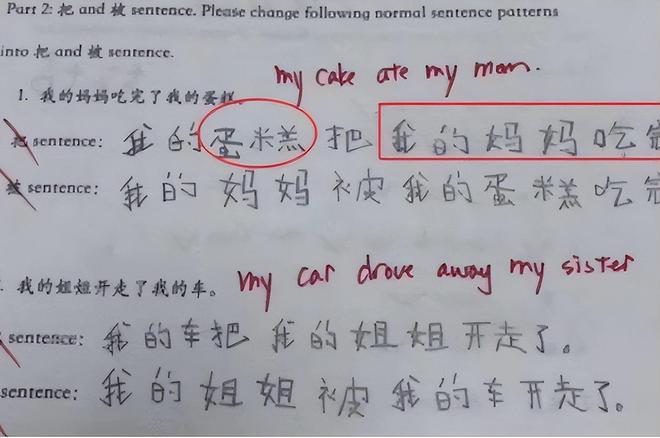 Part 2: 把 and 被 sentence. Please change following normal sentence patterns
into 把 and 被 sentence.
my cake ate my mom.
1. 我的妈妈吃完了我的蛋糕.
把 sentence: 我的蛋糕把我的妈妈吃完
被 sentence: 我的妈妈被我的蛋糕吃完
my car drove away my sister
. 我的姐姐开走了我的车。
sentence: 我的车把我的姐姐开走了。
sentence: 我的姐姐被我的车开走了。